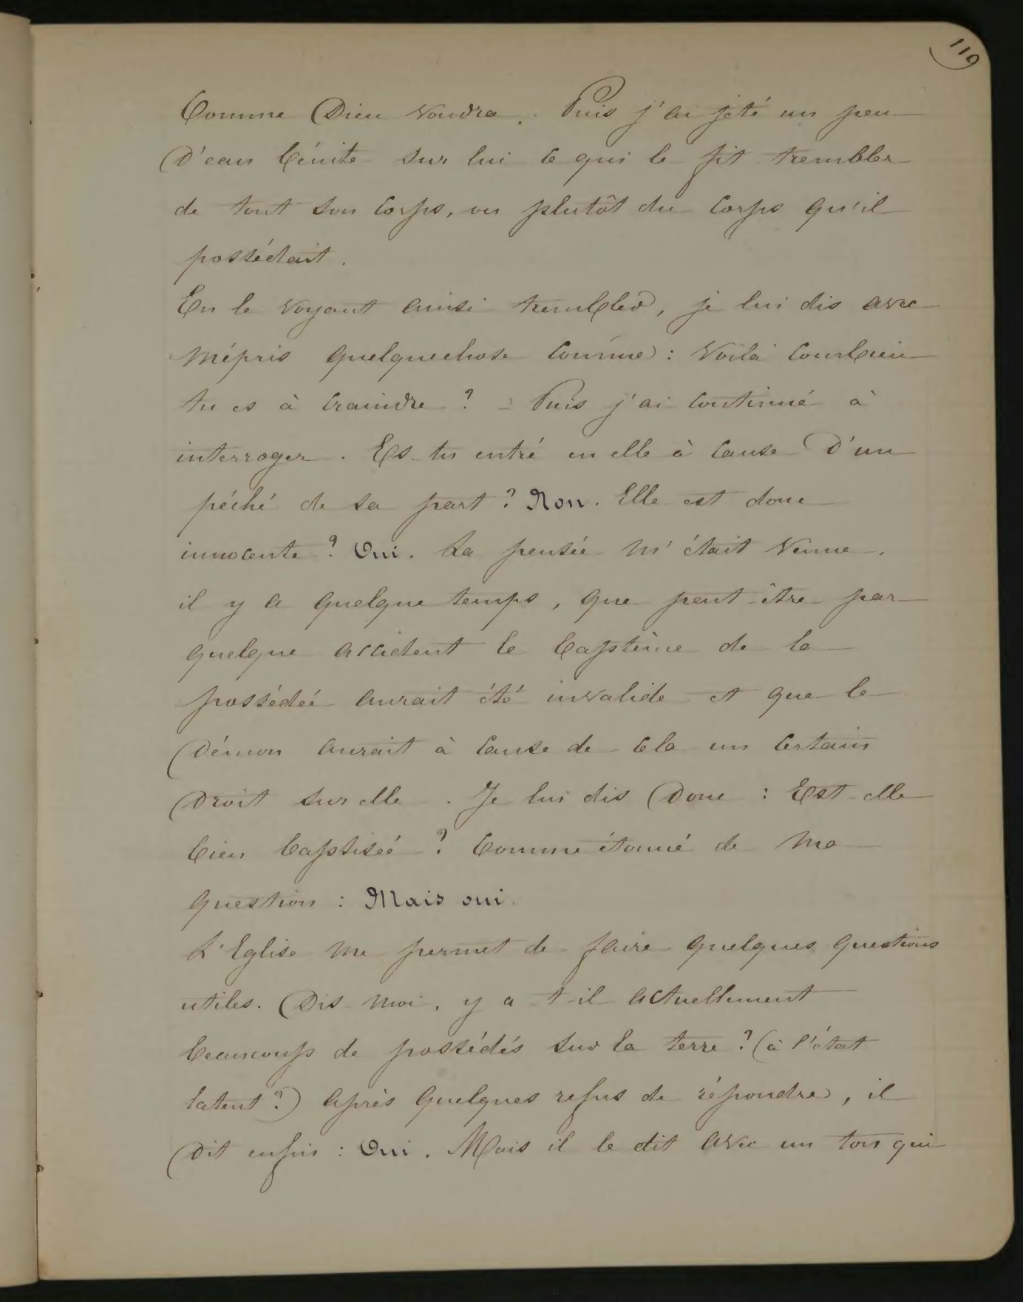 119
Comme Dieu voudra. Puis j'ai jeté un peu
d'eau bénite sur lui ce qui le fit trembler
de tout son corps, ou plutôt du corps qu'il
possédait.
En le voyant ainsi trembler, je lui dis avec
mépris quelquechose comme : Voilà combien
tu es à craindre ? - Puis j'ai continué à
interroger. Es-tu entré en elle à cause d'un
péché de sa part ? Non. Elle est donc
innocente ? Oui. La pensée m'était venue,
il y a quelque temps, que peut-être par
quelque accident le baptême de la
possédée aurait été invalide et que le
démon aurait à cause de cela un certain
droit sur elle. Je lui dis donc : Est-elle
bien baptisée ? Comme étonné de ma
question : Mais oui.
L'Eglise me permet de faire quelques questions
utiles. Dis moi, y a t-il actuellement
beaucoup de possédés sur la terre ? (à l'état
latent ?) Après quelques refus de répondre, il
dit enfin : Oui. Mais il le dit avec un ton qui